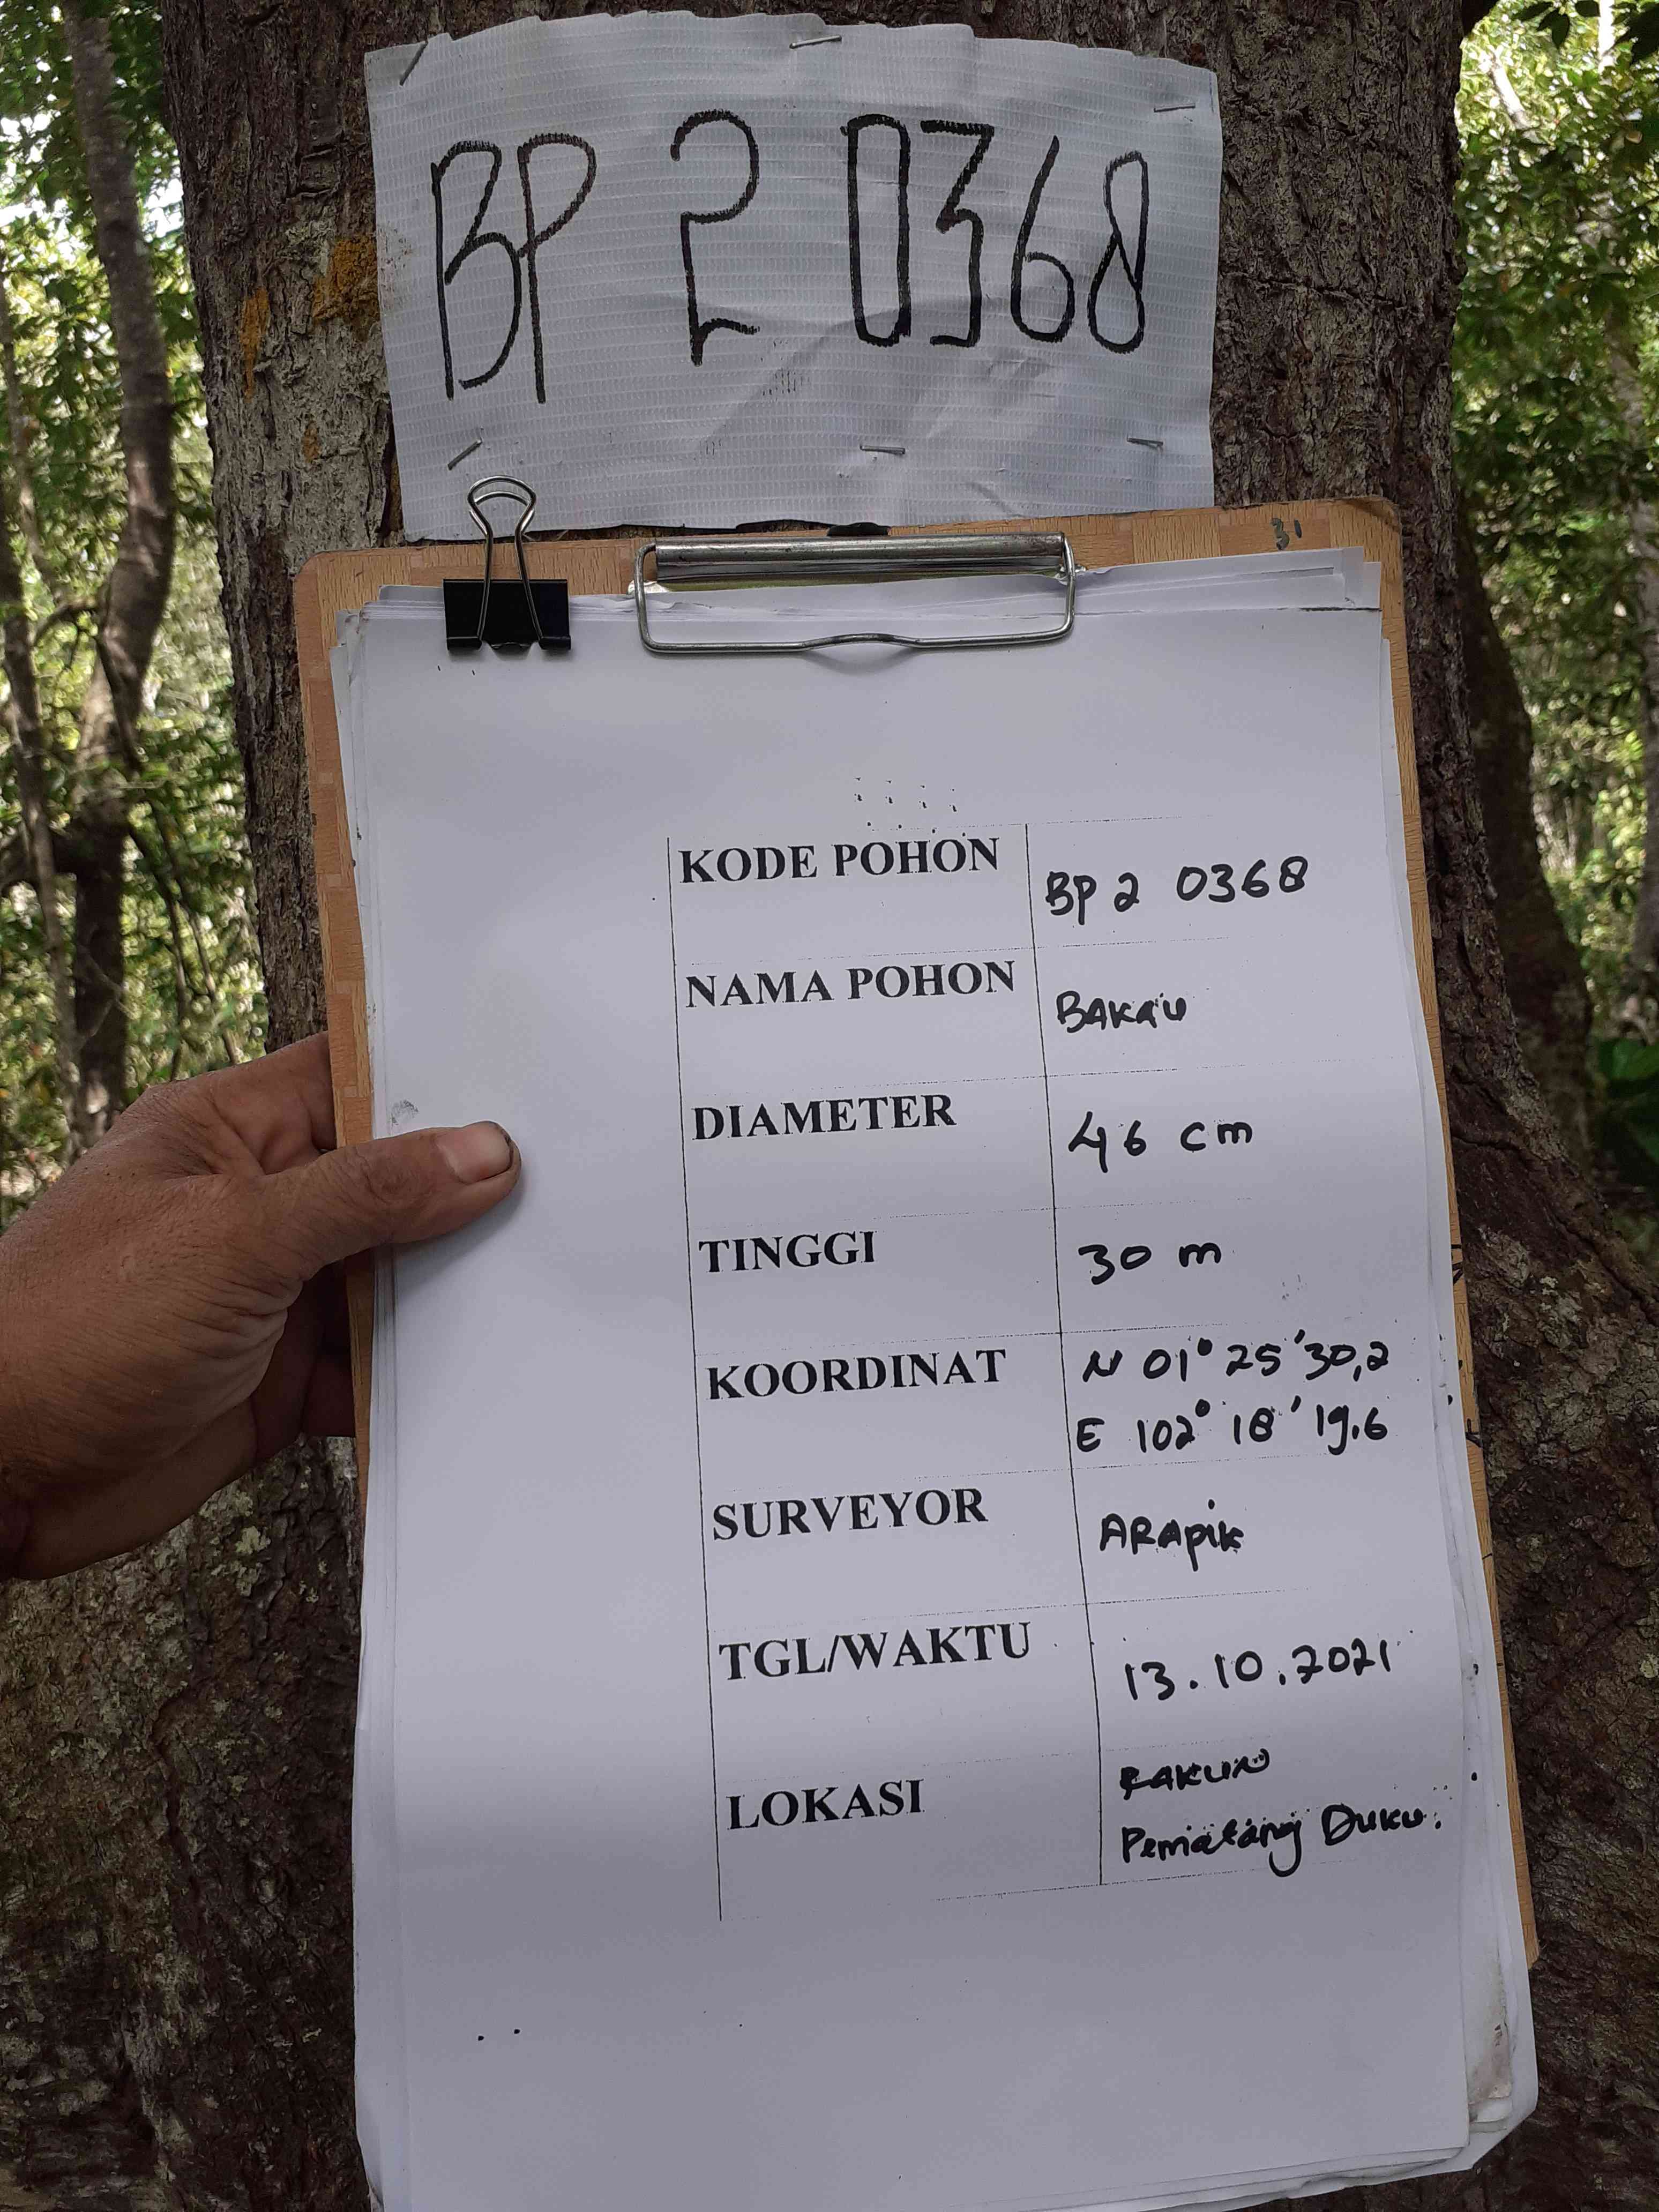 BP 2 0368
31
KODE POHON BP 2 0368
NAMA POHON BAKAU
DIAMETER 46 cm
TINGGI 30 m
KOORDINAT N 01° 25' 30,2
E 102° 18' 19.6
SURVEYOR ARAPIK
TGL/WAKTU 13.10.2021
LOKASI
Pematang Duku.